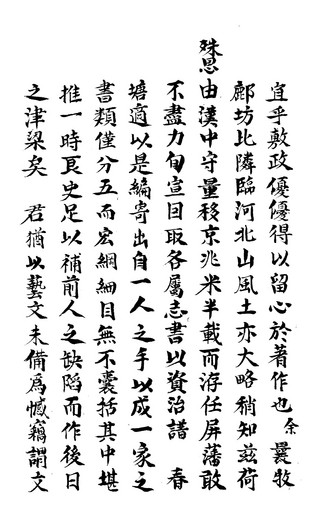 宜乎敷政優優得以留心於著作也余曩牧
鄜坊比隣臨河北山風土亦大略稍知茲荷
殊恩由漢中守量移京兆未半載而洊任屏藩敢
不盡力旬宣目取各屬志書以資治譜 春
塘適以是編寄出自一人之手以成一家之
書類僅分五而宏綱細目無不囊括其中堪
推一時良史足以補前人之缺陷而作後日
之津梁矣 君猶以藝文未備爲憾竊謂文